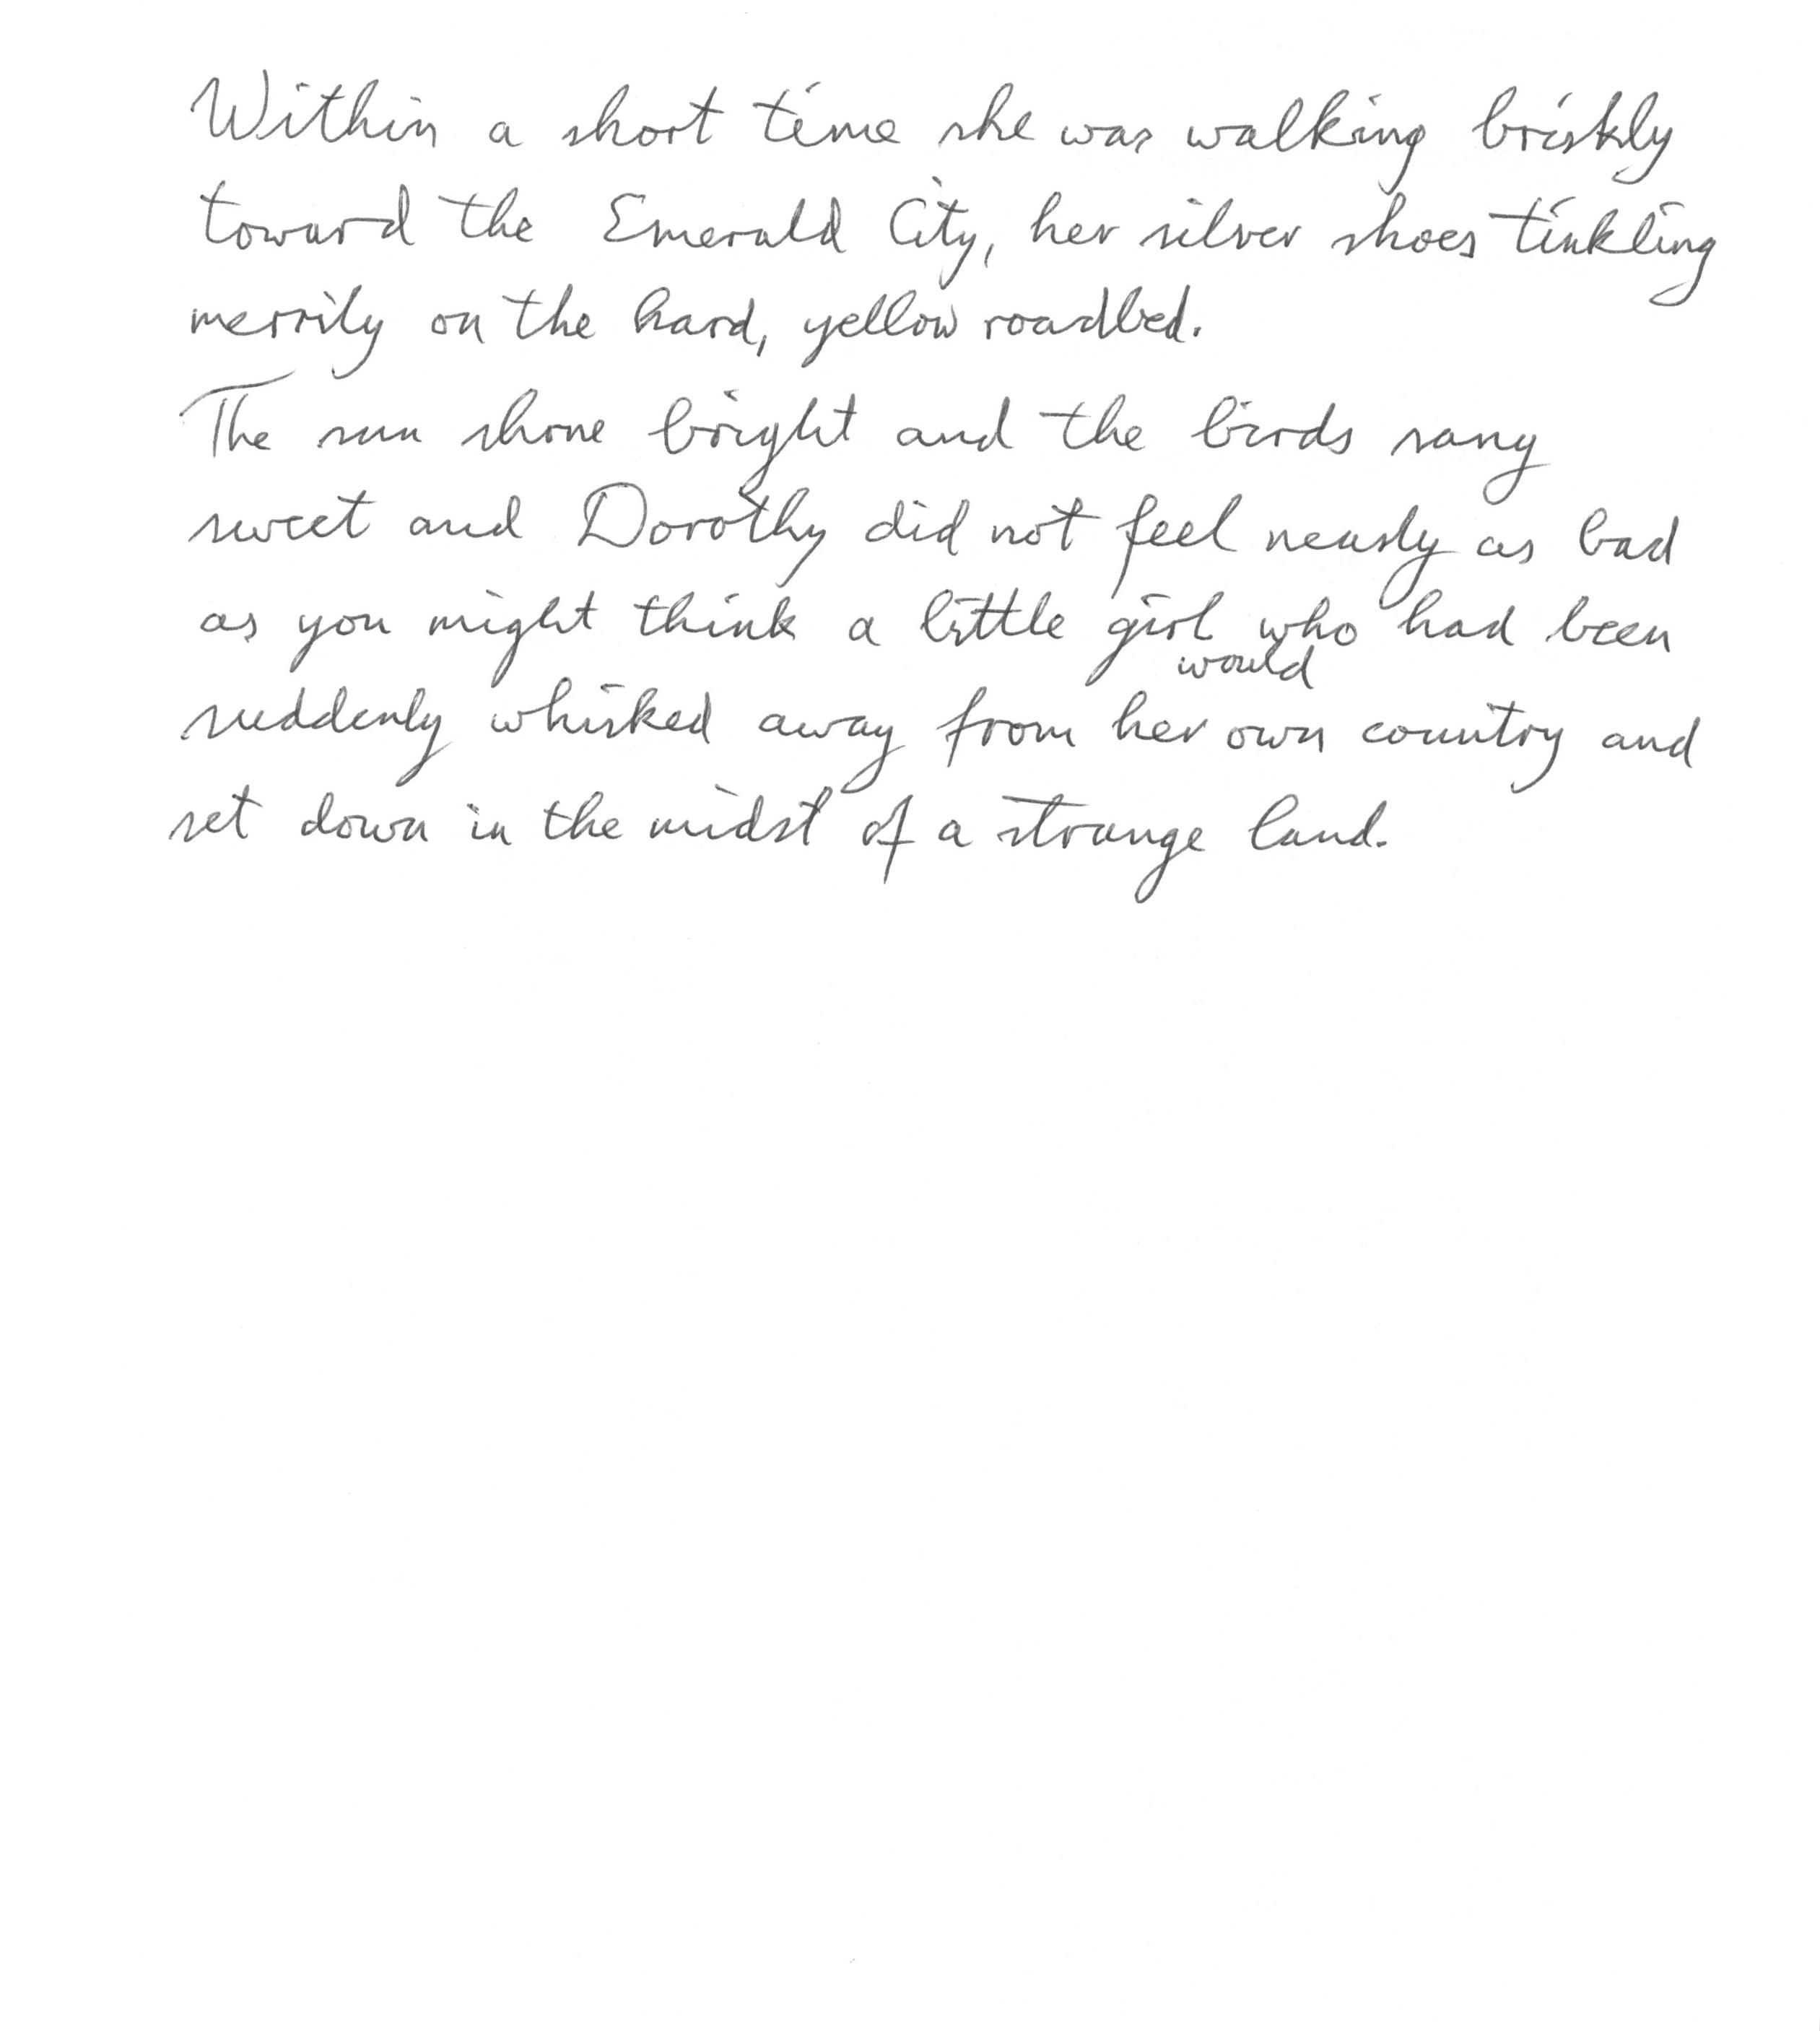 Within a short time she was walking briskly
toward the Emerald City, her silver shoes tinkling
merrily on the hard, yellow roadbed.
The sun shone bright and the birds sang
sweet and Dorothy did not feel nearly as bad
as you might think a little girl who had been
would
suddenly whisked away from her own country and
set down in the midst of a strange land.